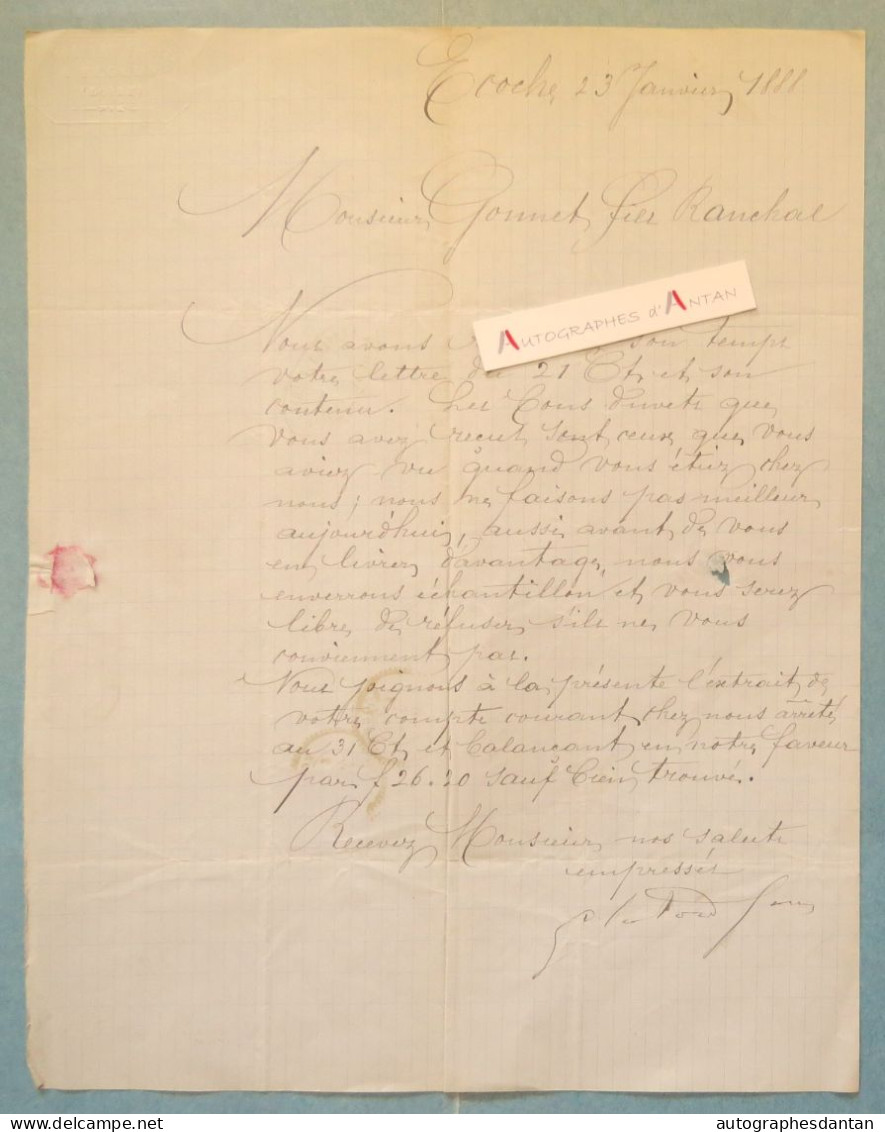 Ecoche 23 Janvier 1888
Monsieur Gonnet fils Ranchal
AUTOGRAPHES d'ANTAN
Nous avons son temps
votre lettre du 21 Ct et son
contenu. Les bons duvets que
vous avez recut sont ceux que vous
aviez vu quand vous étiez chez
nous; nous ne faisons pas meilleur
aujourdhui, aussi avant de vous
en livrer davantage, nous vous
enverrons échantillon et vous serez
libre de réfuser s'ils ne vous
conviennent pas.
Nous joignons à la présente l'extrait de
votre compte courant chez nous arrêté
au 31 Ct et balançant en notre faveur
par f 26.20 sauf bien trouvé.
Recevez Monsieur nos saluts
empressés
autographesdantan
delcampe.net